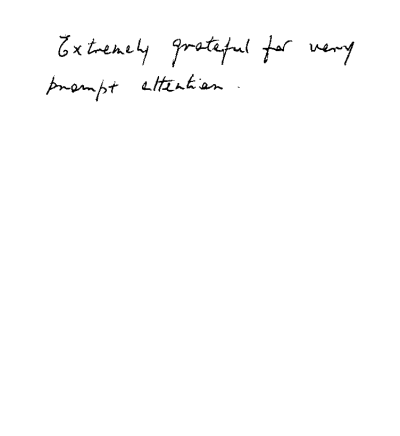 Extremely grateful for very
prompt attention.